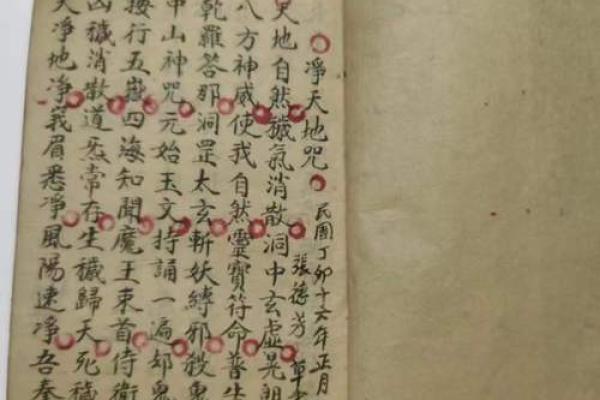 淨天地咒 民國丁卯十六年正月
張德芳
天地自然穢氣消散洞中玄虛晃朗
八方神威使我自然靈寶符命普
乾羅答那洞罡太玄斬妖縛邪殺鬼
中山神咒元始玉文持誦一遍却鬼
按行五嶽四海知聞魔王束首侍衛
凶穢消散道炁常存生穢歸天死穢
天淨地淨我眉悉淨風陽速淨吾奉